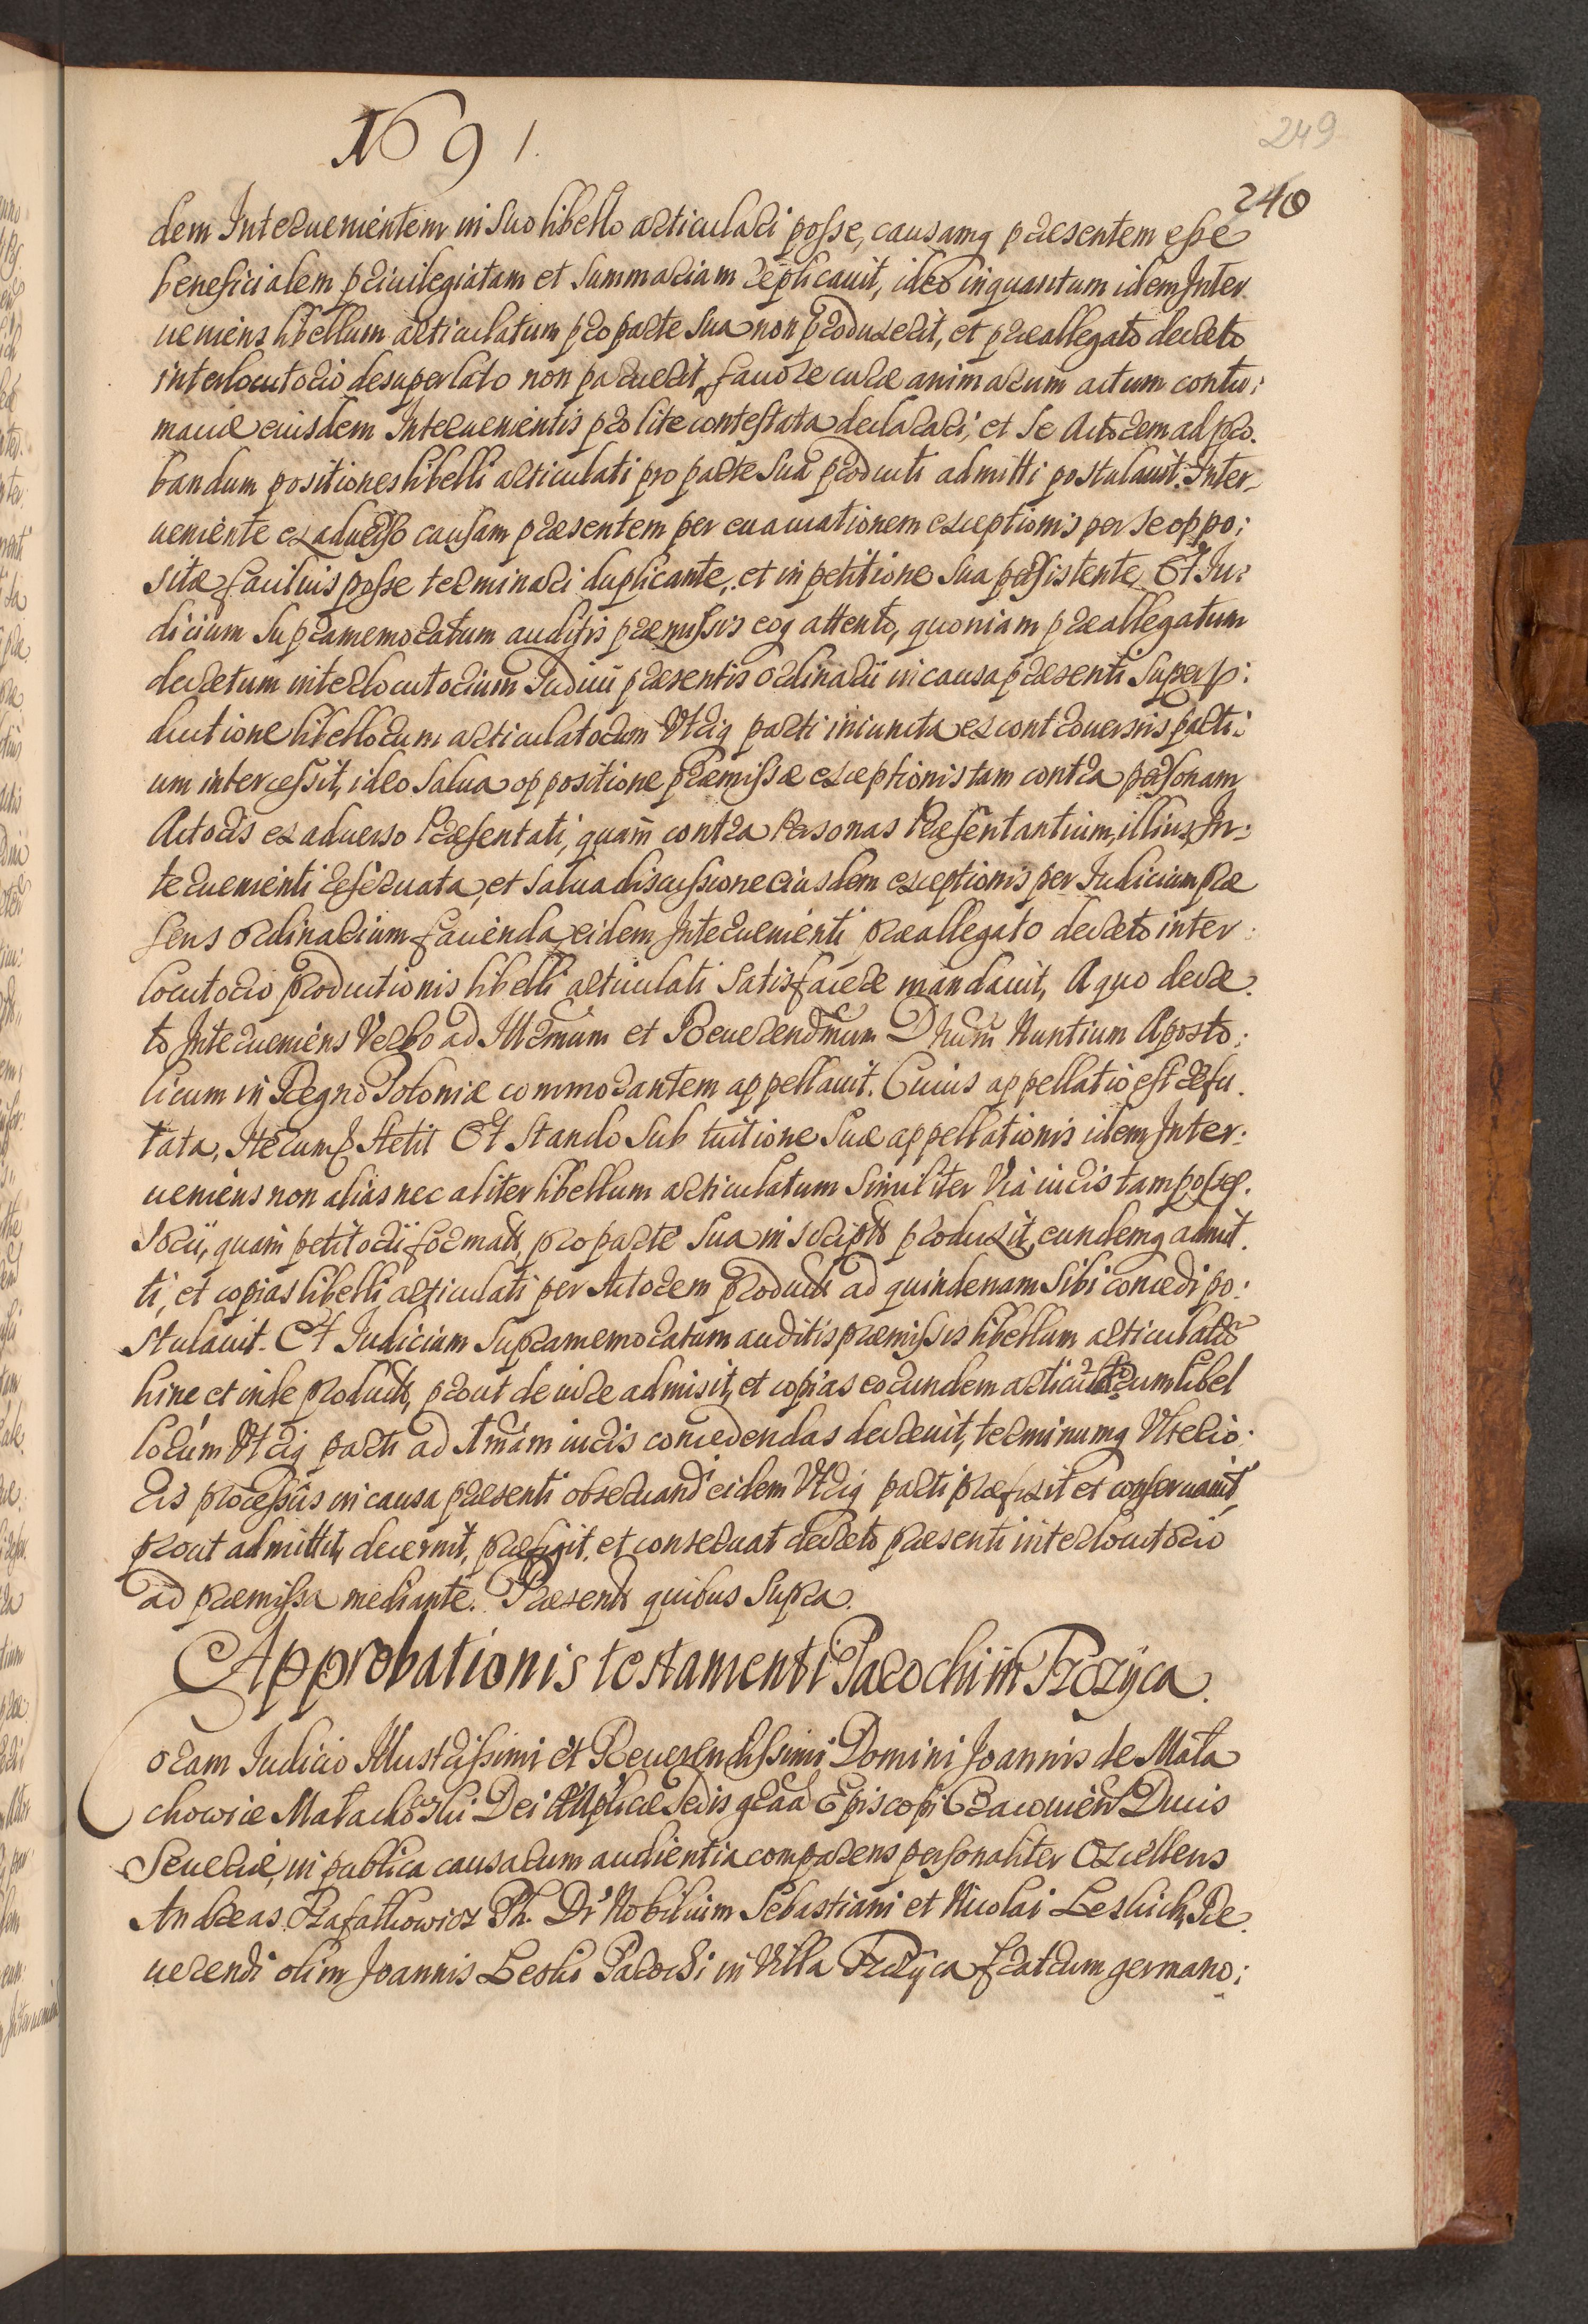 1691.
249
240
dem Interuenientem in suo libello articulari posse, causamq præsentem esse
beneficialem priuilegiatam et summariam replicauit, ideo inquantum idem Inter
ueniens libellum articulatum pro parte sua non produxerit, et præallegato decreto
interlocutorio desuper lato non paruerit, fauore curæ animarum actum contu:
maciæ eiusdem Interuenientis pro lite contestata declarari, et se Actorem ad pro.
bandum positiones libelli articulati pro parte sua producti admitti postulauit. Inter-
ueniente ex aduerso causam præsentem per euacuationem exceptionis per se oppo:
sitæ facilius posse terminari duplicante, et in petitione sua persistente, Et Iu:
dicium supramemoratum auditis præmissis eoq attento, quoniam præallegatum
decretum interlocutorium Iudicii præsentis ordinarii in causa præsenti super p:
ductione libellorum articulatorum Vtriq parti iniuncta ex controuersiis parti:
um intercessit, ideo salua oppositione præmissæ exceptionis tam contra personam
Actoris ex aduerso Præsentati, quam contra Personas Præsentantium, illius In:
teruenienti reseruata, et salua discussione eiusdem exceptionis per Iudicium præ
sens ordinarium facienda, eidem Interuenienti præallegato decreto inter:
locutorio productionis libelli articulati satisfacere mandauit, A quo decre.
to Interueniens Verbo ad Illrmum et Reuerendmum Dnum Nuntium Aposto:
licum in Regno Poloniæ commorantem appellauit. Cuius appellatio est refu.
tata, Iterumq stetit Et stando sub tuitione suæ appellationis idem Inter:
ueniens non alias nec aliter libellum articulatum similiter Via iuris tam posses.
sorii, quam petitorii formati, pro parte sua in scriptis produxit, eundemq admit.
ti, et copias libelli articulati per Actorem producti ad quindenam sibi concedi po:
stulauit. Et Iudicium supramemoratum auditis præmissis libellum articulatum
hinc et inde producti, prout de iure admisit, et copias eorundem articulatorum libel
lorum Vtriq parti ad Amam iuris concedendas decreuit, terminumq Vlterio:
ris processus in causa præsenti obseruandi eidem Vtriq parti præfixit et conseruauit,
prout admittit, decernit, præfigit, et conseruat decreto præsenti interlocutorio
ad præmissa mediante. Præsentibus quibus supra.
Approbationis testamenti Parochi in Frzozÿca.
Coram Iudicio Illustrissimi et Reuerendissimi Domini Joannis de Mała
chowice Małachowski Dei Aplicæ Sedis gratia Episcopi Cracouien Ducis
Seueriæ, in publica causarum audientia comparens personaliter Excellens
Andreas Rafałkowicz Ph. Dr Nobilium Sebastiani et Nicolai Leskich, Re.
uerendi olim Joannis Leski Parochi in Villa Frzozÿca fratrum germano: